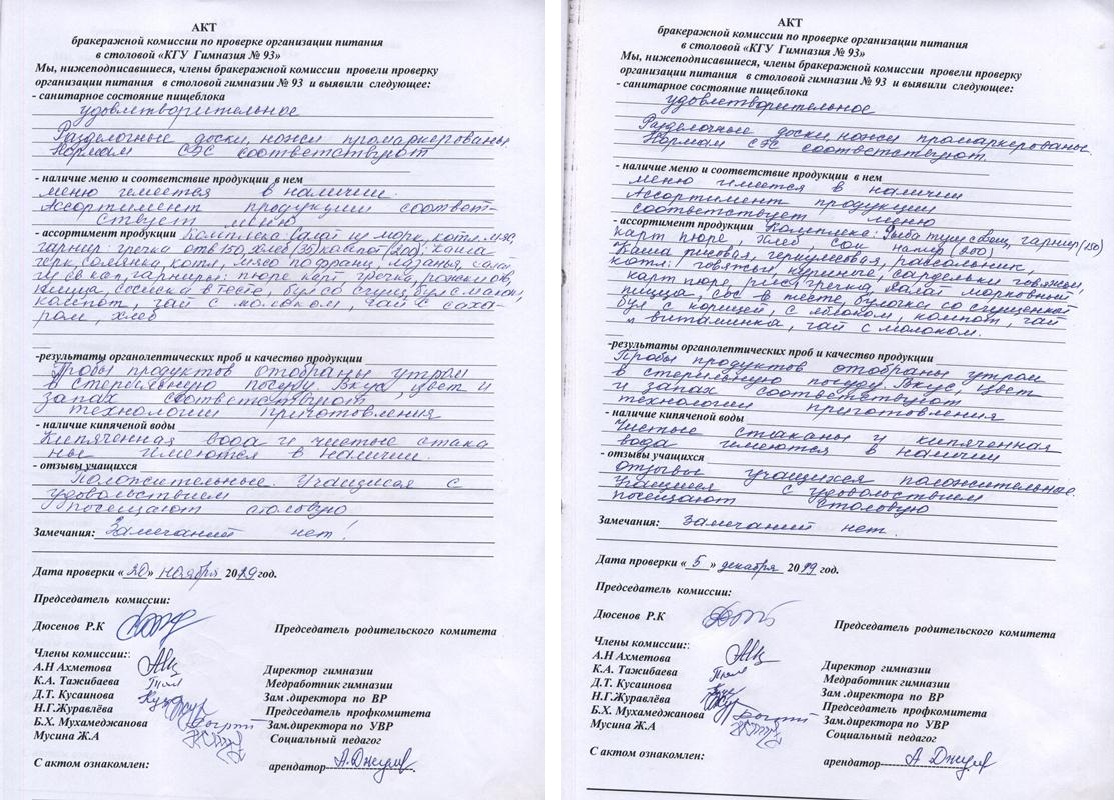 АКТ
бракеражной комиссии по проверке организации питания
в столовой «КГУ Гимназия № 93»
Мы, нижеподписавшиеся, члены бракеражной комиссии провели проверку
организации питания в столовой гимназии № 93 и выявили следующее:
- санитарное состояние пищеблока
удовлетворительное
Разделочные доски, ножи промаркерованы.
Нормам СЭС соответствуют
- наличие меню и соответствие продукции в нем
меню имеется в наличии.
Ассортимент продукции соответ-
ствует меню
- ассортимент продукции Комплекс: Салат из морк, котл. мяс,
гарнир: гречка отв 150, хлеб, компот (200). Каша
герк, солянка, котл, мясо по франц, лазанья, салат
из св кап, гарниры: пюре карт, гречка, рожки отв,
пицца, сосиска в тесте, бул со сгущ, бул с маком,
компот, чай с молоком, чай с саха-
ром, хлеб
-результаты органолептических проб и качество продукции
Пробы продуктов отобраны утром
в стерильную посуду. Вкус, цвет и
запах соответствуют
технологии приготовления
- наличие кипяченой воды
Кипяченная вода и чистые стака
ны имеются в наличии.
- отзывы учащихся
Положительные. Учащиеся с
удовольствием
посещают столовую
Замечания: Замечаний нет!
Дата проверки « 20 » ноября 2019 год.
Председатель комиссии:
Дюсенов Р.К
Председатель родительского комитета
Члены комиссии:
А.Н Ахметова Директор гимназии
К.А. Тажибаева Медработник гимназии
Д.Т. Кусаинова Зам .директора по ВР
Н.Г.Журавлёва Председатель профкомитета
Б.Х. Мухамеджанова Зам.директора по УВР
Мусина Ж.А Социальный педагог
С актом ознакомлен: арендатор

АКТ
бракеражной комиссии по проверке организации питания
в столовой «КГУ Гимназия № 93»
Мы, нижеподписавшиеся, члены бракеражной комиссии провели проверку
организации питания в столовой гимназии № 93 и выявили следующее:
- санитарное состояние пищеблока
удовлетворительное
Разделочные доски, ножи промаркерованы.
Нормам СЭС соответствуют.
- наличие меню и соответствие продукции в нем
меню имеется в наличии
Ассортимент продукции
соответствует меню
- ассортимент продукции Комплекс: Рыба туш с овощ, гарнир (150)
карт пюре, хлеб, сок (200)
Каша рисовая, геркулесовая, рассольник,
котл: говяжьи, куриные, сардельки говяжьи,
карт пюре, рис, гречка, салат морковный
пицца, сос в тесте, булочка со сгущенкой
бул с корицей, с яблоком, компот, чай
витаминка, чай с молоком.
-результаты органолептических проб и качество продукции
Пробы продуктов отобраны утром
в стерильную посуду. Вкус, цвет
и запах соответствуют
технологии приготовления
- наличие кипяченой воды
Чистые стаканы и кипяченная
вода имеются в наличии
- отзывы учащихся
Отзывы учащихся положительные.
Учащиеся с удовольствием
посещают столовую
Замечания: Замечаний нет.
Дата проверки « 5 » декабря 2019 год.
Председатель комиссии:
Дюсенов Р.К
Председатель родительского комитета
Члены комиссии:
А.Н Ахметова Директор гимназии
К.А. Тажибаева Медработник гимназии
Д.Т. Кусаинова Зам .директора по ВР
Н.Г.Журавлёва Председатель профкомитета
Б.Х. Мухамеджанова Зам.директора по УВР
Мусина Ж.А Социальный педагог
С актом ознакомлен: арендатор